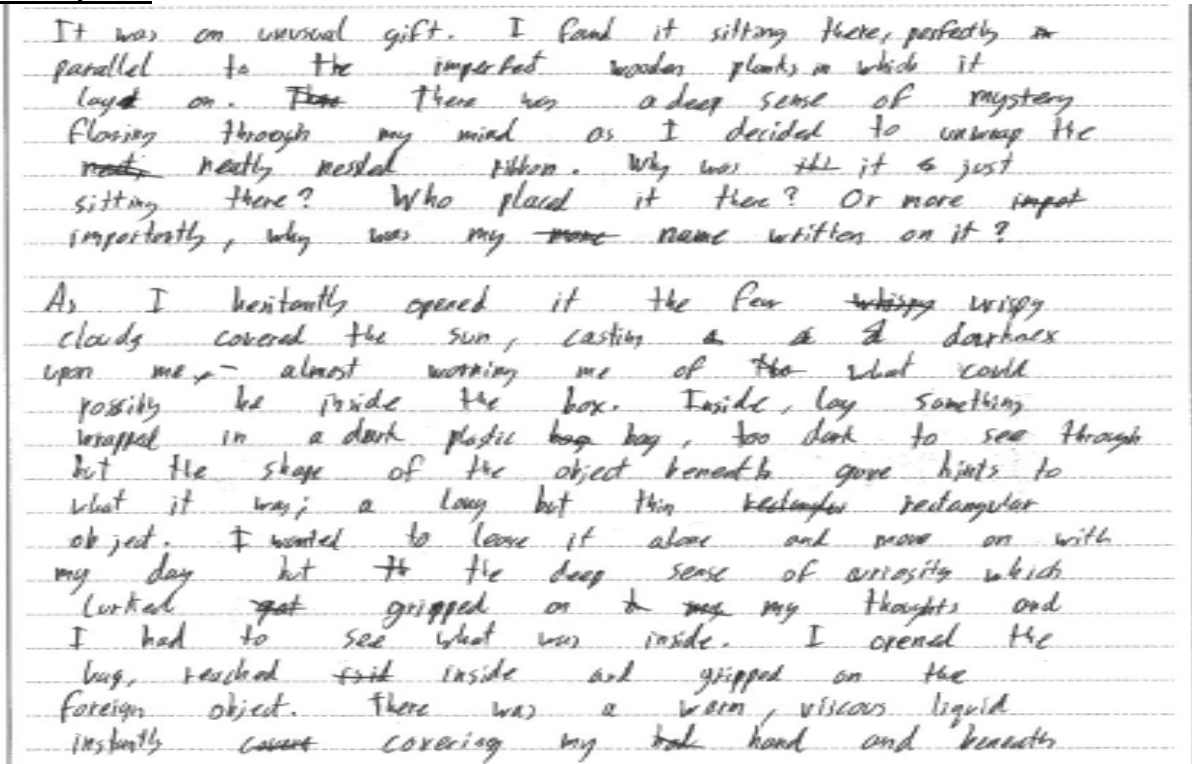 It was an unusual gift. I found it sitting there, perfectly
parallel to the imperfect wooden planks in which it
layed on. There was a deep sense of mystery
flowing through my mind as I decided to unwrap the
neatly nested ribbon. Why was it just
sitting there? Who placed it there? Or more impot
importantly, why was my more name written on it?
As I hesitantly opened it the few whispy wispy
clouds covered the sun, casting a a a darkness
upon me, - almost warning me of the what could
possibly be inside the box. Inside, lay something
wrapped in a dark plastic bag bag, too dark to see through
but the shape of the object beneath gave hints to
what it was; a long but thin rectangular rectangular
object. I wanted to leave it alone and move on with
my day but th the deep sense of curiosity which
lurked got gripped on my my thoughts and
I had to see what was inside. I opened the
bag, reached inside and gripped on the
foreign object. There was a warm, viscous liquid
instantly covering my hand and beneath